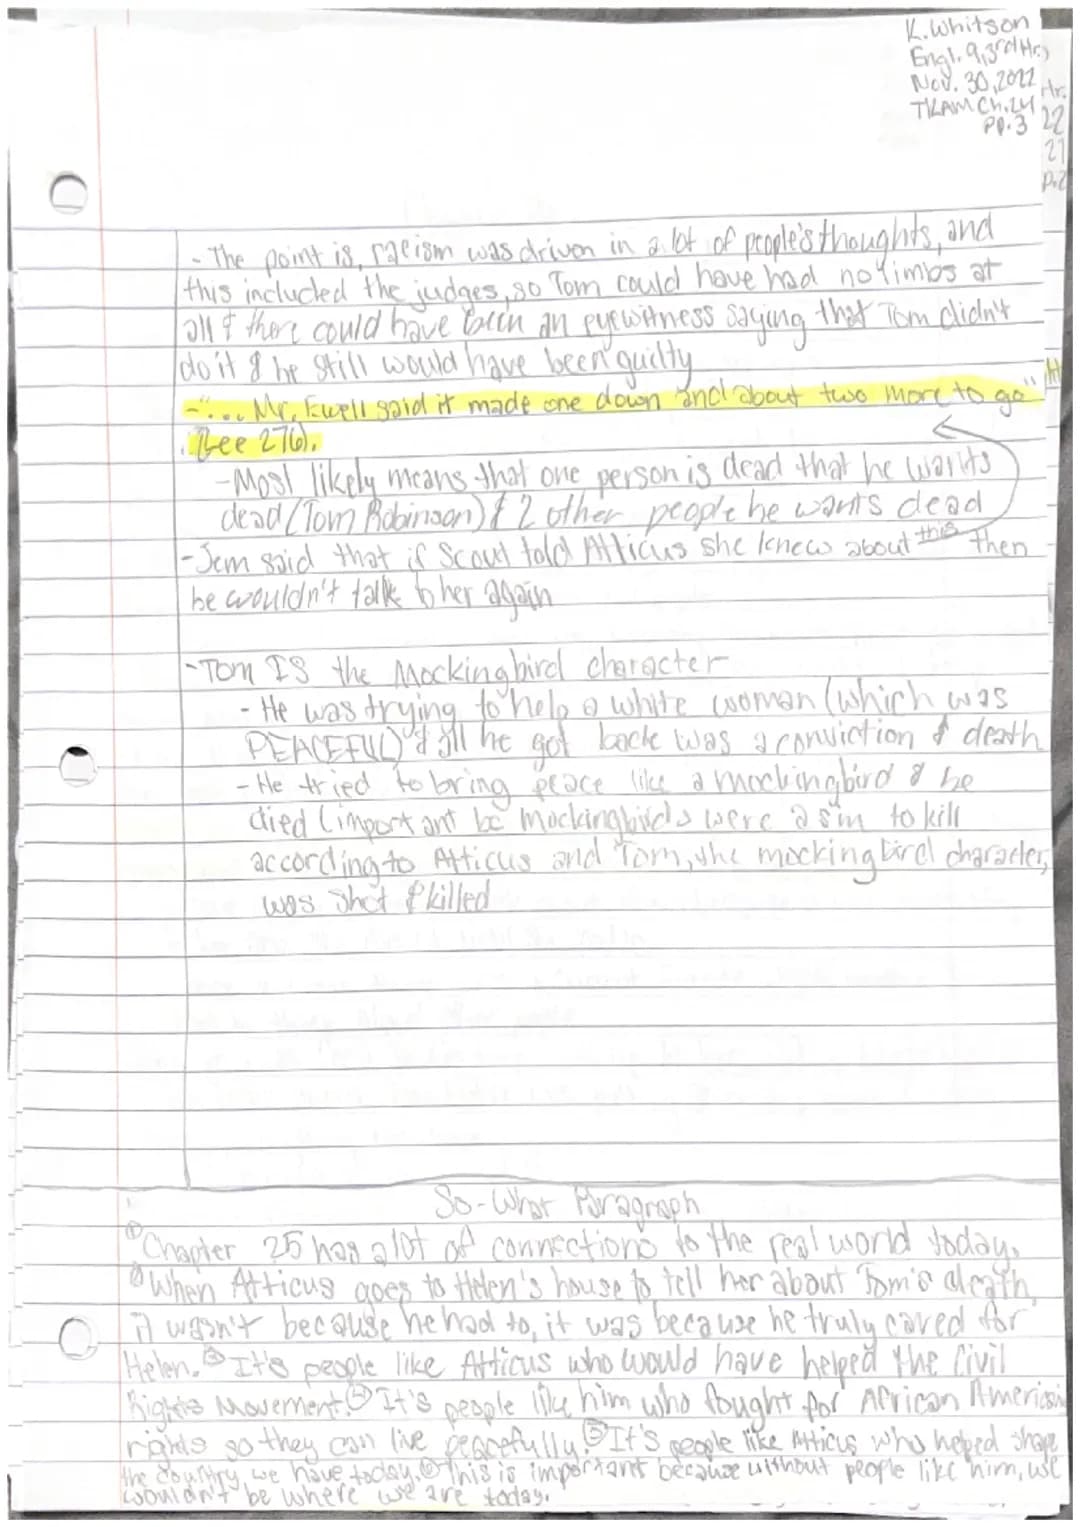 K. Whitson
Engl. 9, 3rd Hr.
Nov. 30, 2022
TKAM Ch. 24
pp. 3
Hr.
22
21
p. 2
- The point is, racism was driven in a lot of people's thoughts, and
this included the judges, so Tom could have had no limbs at
all & there could have been an eyewitness saying that Tom didn't
do it & he still would have been guilty
- "... Mr. Ewell said it made one down and about two more to go"
(Lee 276).
- Most likely means that one person is dead that he wants
dead (Tom Robinson) & 2 other people he wants dead
- Jem said that if Scout told Atticus she knew about this then
he wouldn't talk to her again
- Tom IS the Mockingbird character
- He was trying to help a white woman (which was
PEACEFUL) & all he got back was a conviction & death
- He tried to bring peace like a mockingbird & he
died (important bc mockingbirds were a sin to kill
according to Atticus and Tom, the mockingbird character,
was shot & killed
So-What Paragraph
① Chapter 25 has a lot of connections to the real world today.
② When Atticus goes to Helen's house to tell her about Tom's death,
it wasn't because he had to, it was because he truly cared for
Helen. ③ It's people like Atticus who would have helped the Civil
Rights Movement. ④ It's people like him who fought for African American
rights so they can live peacefully. ⑤ It's people like Atticus who helped shape
the country we have today. ⑥ This is important because without people like him, we
wouldn't be where we are today.